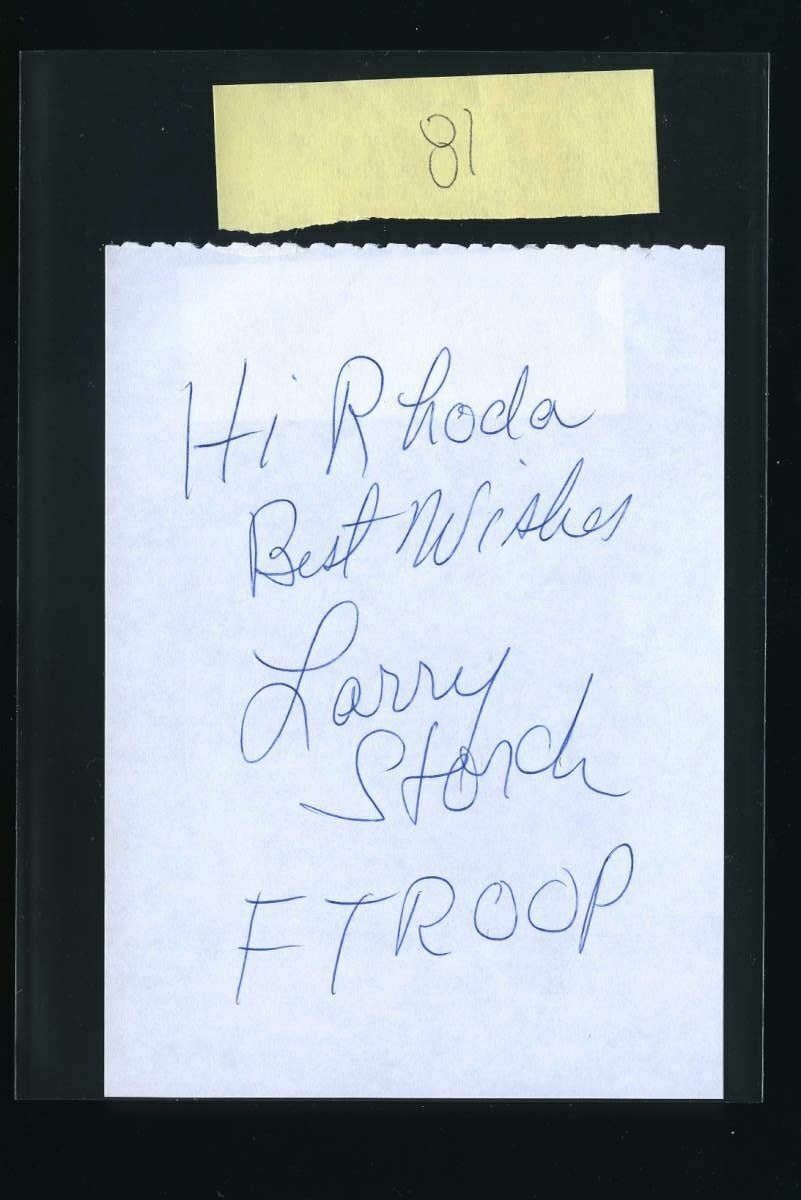 81
Hi Rhoda
Best Wishes
Larry
Storch
F TROOP